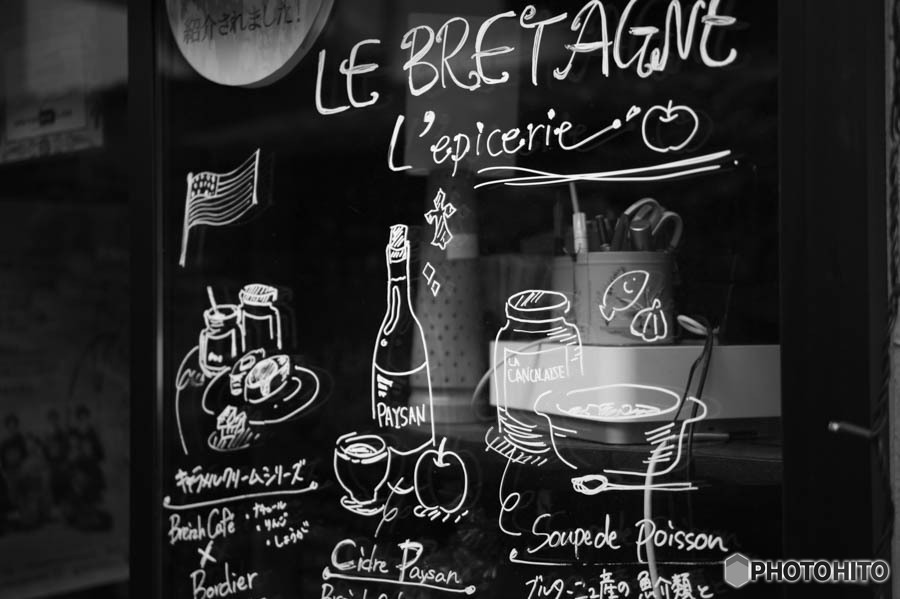 紹介されました!
LE BRETAGNE
L'epicerie
LA
CANCALAISE
PAYSAN
キャラメルクリームシリーズ
Breizh Café
×
Bordier
・ナチュール
・りんご
・しょうが
Cidre Paysan
Soupe de Poisson
ブルターニュ産の魚介類と
PHOTOHITO